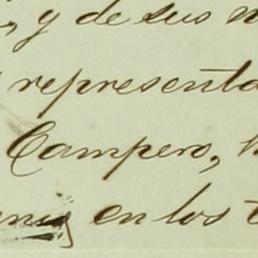 , y de sus
representa
Campero,
en los